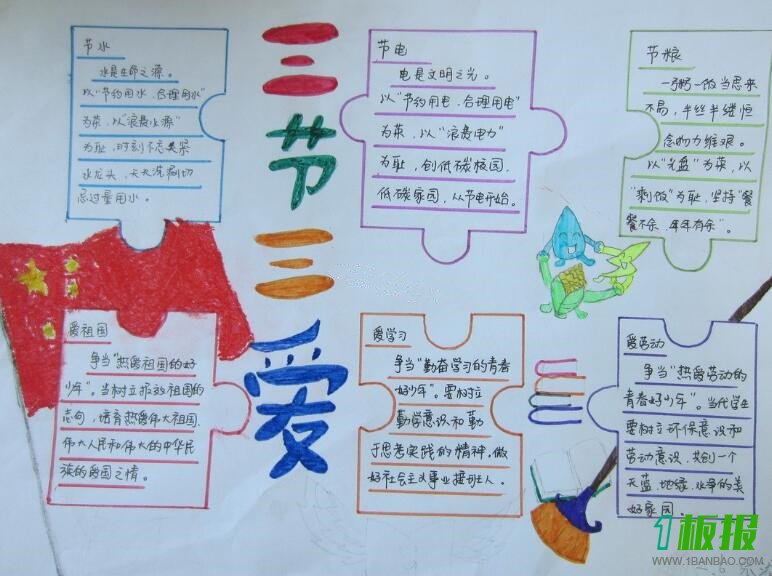 三节三爱
节水
水是生命之源。
以"节约用水、合理用水"
为荣，以"浪费水源"
为耻，时刻不忘关紧
水龙头，天天洗刷切
忌过量用水。
节电
电是文明之光。
以"节约用电、合理用电"
为荣，以"浪费电力"
为耻，创低碳校园，
低碳家园，从节电开始。
节粮
一粥一饭当思来
不易，半丝半缕恒
念物力维艰。
以"光盘"为荣，以
"剩饭"为耻，坚持"餐
餐不余，年年有余"。
爱祖国
争当"热爱祖国的好
少年"。当树立报效祖国的
志向，培育热爱伟大祖国、
伟大人民和伟大的中华民
族的爱国之情。
爱学习
争当"勤奋学习的青春
好少年"。要树立
勤学意识和勤
于思考实践的精神，做
好社会主义事业接班人。
爱劳动
争当"热爱劳动的
青春好少年"。当代学生
要树立环保意识和
劳动意识，共创一个
天蓝、地绿、水净的美
好家园。
1板报
WWW.1BANBAO.COM